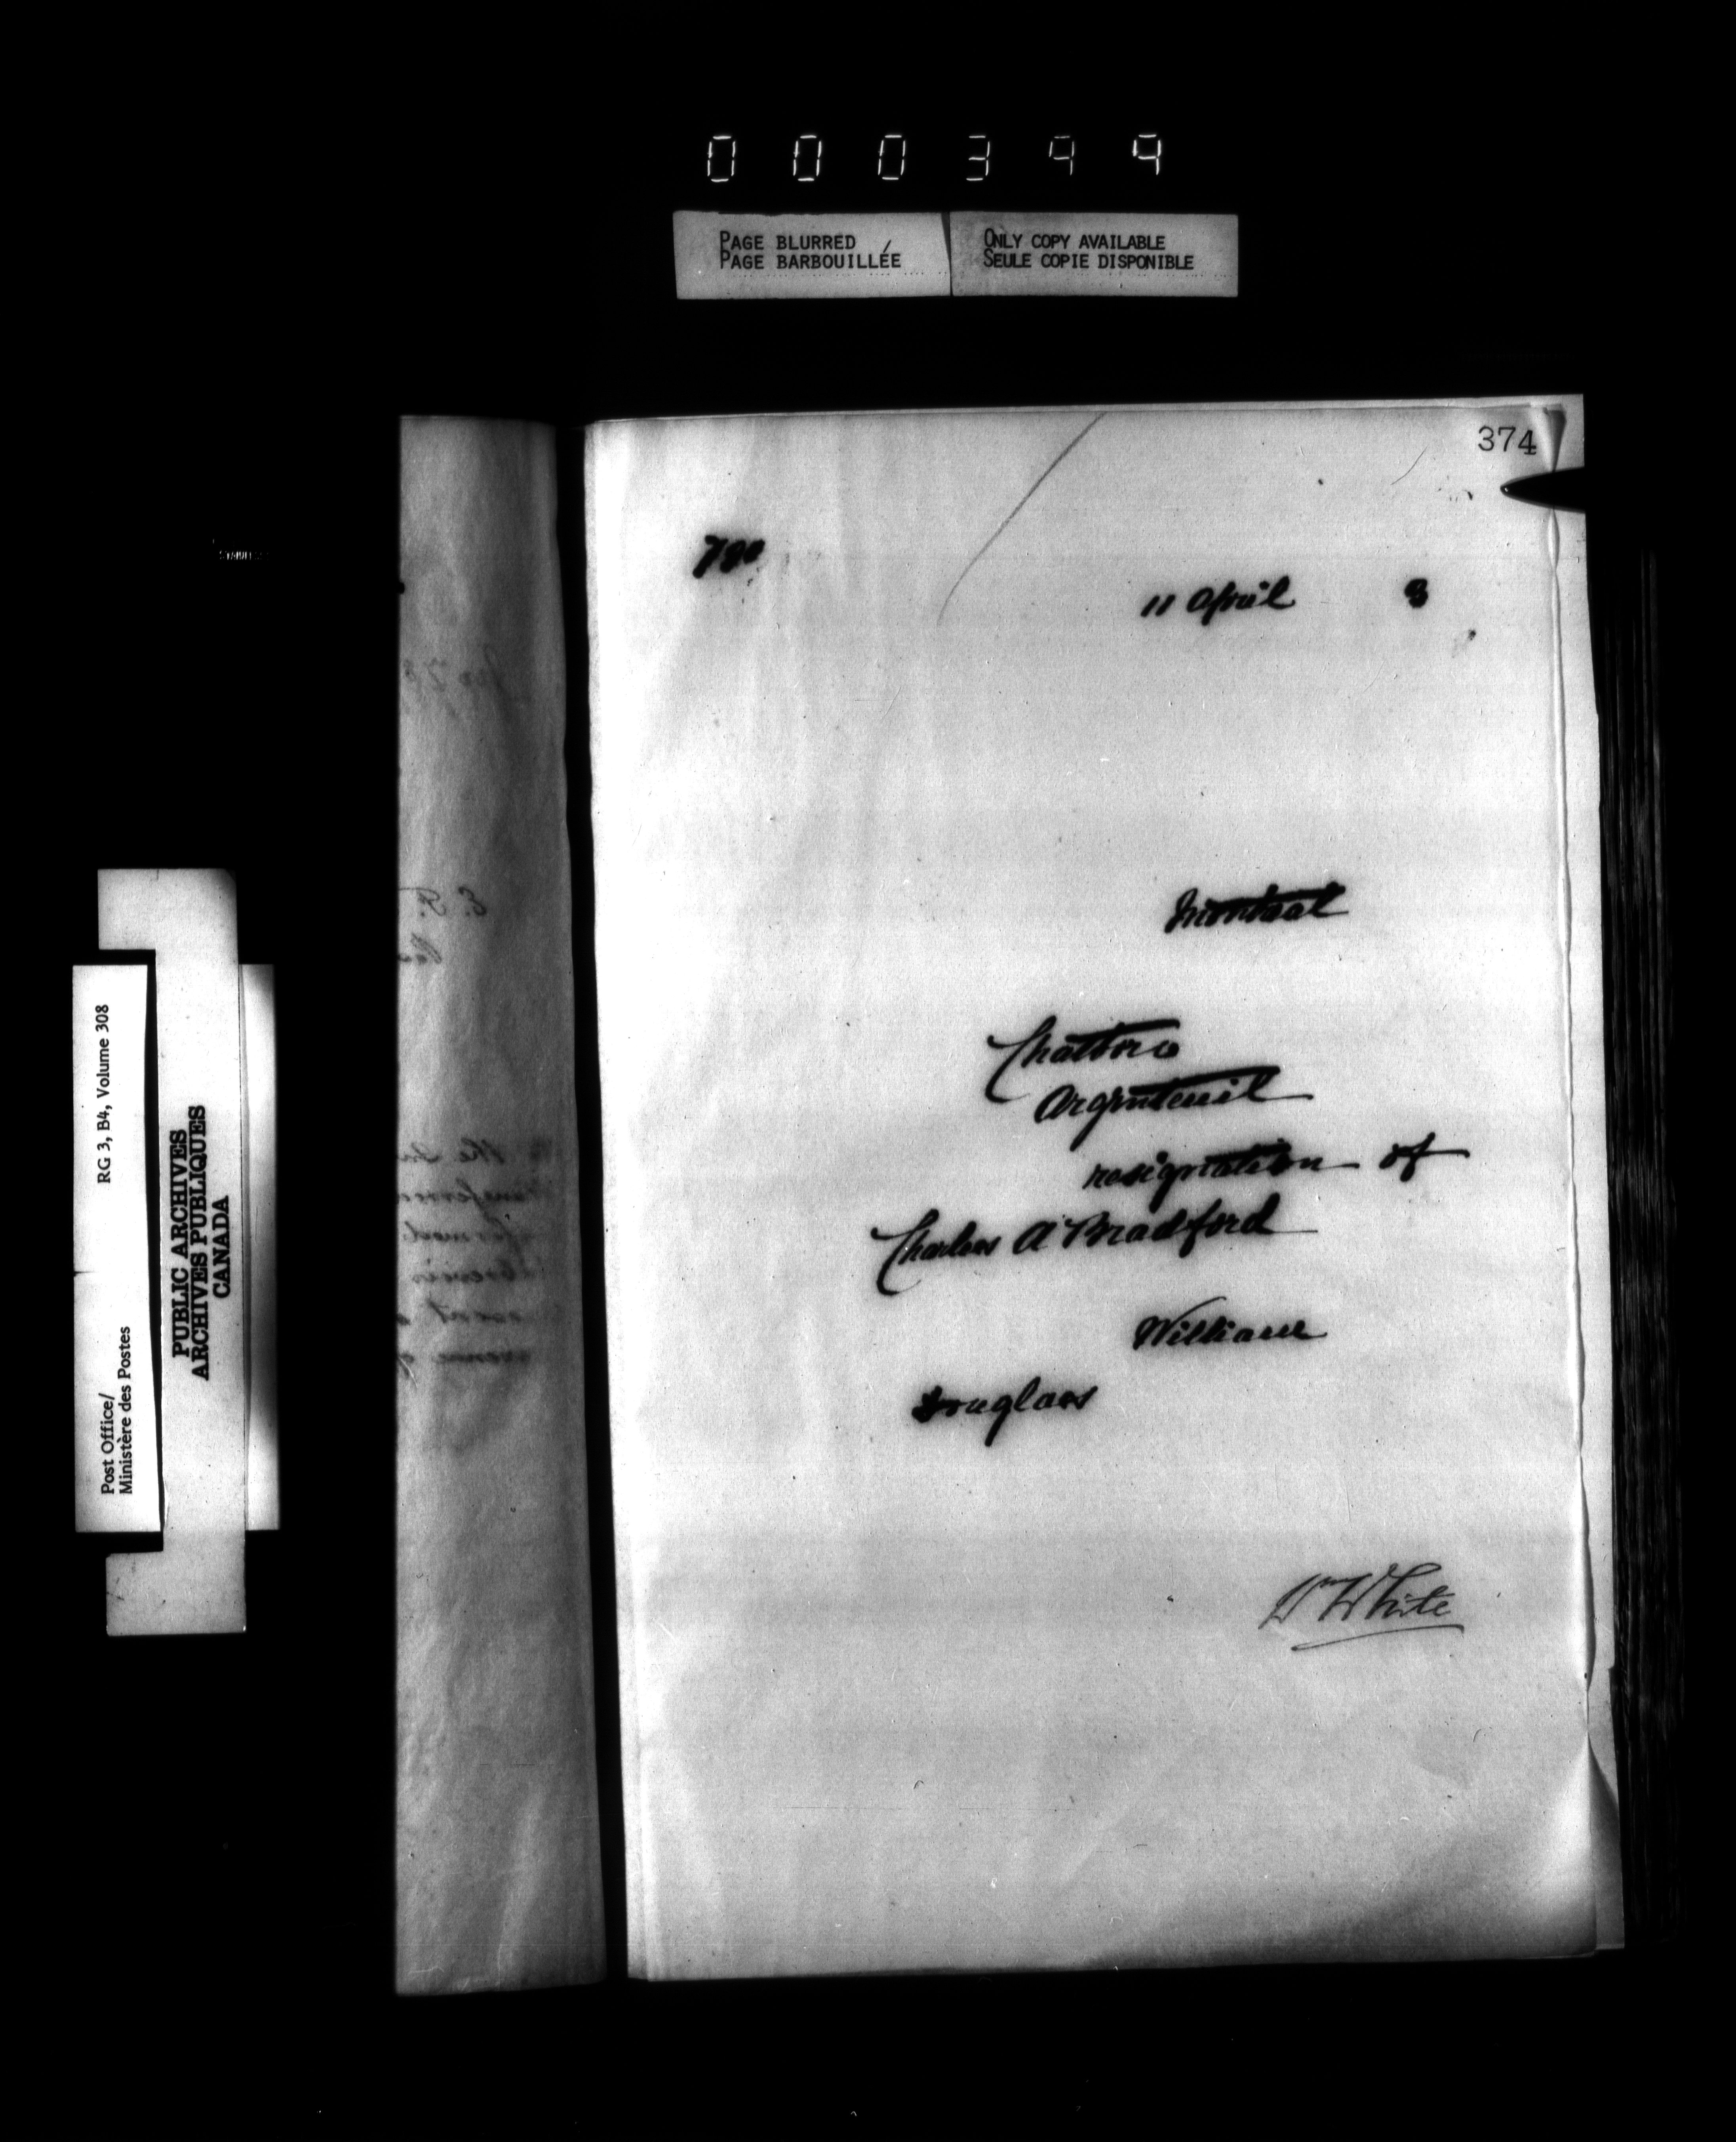 000399
PAGE BLURRED
PAGE BARBOUILLÉE
ONLY COPY AVAILABLE
SEULE COPIE DISPONIBLE
374
11 April 3
Montreal
Chatboro
Argenteuil
resignation of
Charles A Bradford
William
Douglass
Wm White
RG 3, B4, Volume 308
Post Office/
Ministère des Postes
PUBLIC ARCHIVES
ARCHIVES PUBLIQUES
CANADA